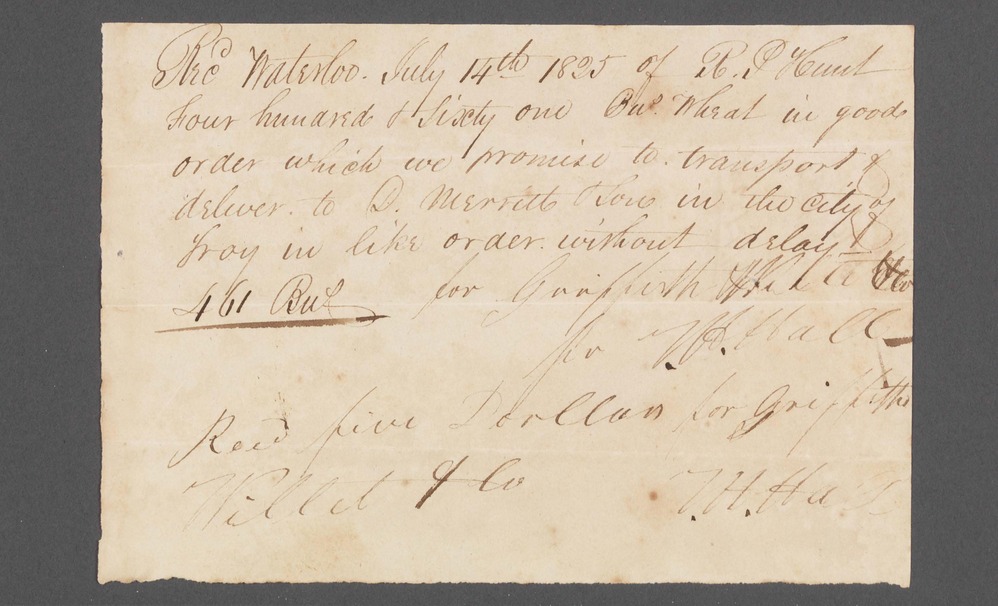 Recd Waterloo. July 14th 1825 of R. P Hunt
Four hundred & Sixty one Bus. Wheat in good
order which we promise to transport &
deliver. to D. Merritt & Son in the city of
Troy in like order. without delay
461 Bus for Griffith Willett & Co
pr T. H. Hall
Recd five Dorllars for Griffiths
Willet & Co T. H. Hall